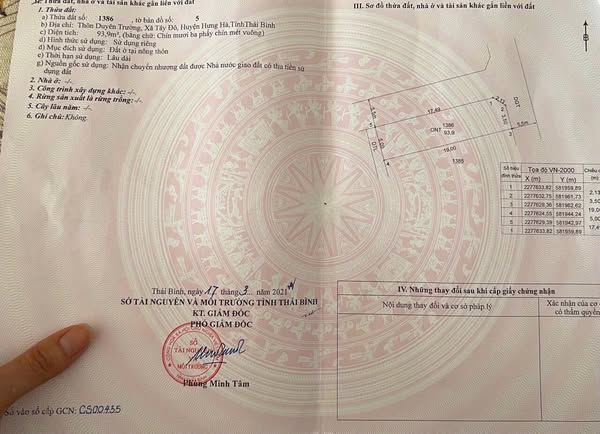 II. Thửa đất, nhà ở và tài sản khác gắn liền với đất
1. Thửa đất:
a) Thửa đất số: 1386 , tờ bản đồ số: 5
b) Địa chỉ: Thôn Duyên Trường, Xã Tây Đô, Huyện Hưng Hà,Tỉnh Thái Bình
c) Diện tích: 93,9m², (bằng chữ: Chín mươi ba phẩy chín mét vuông)
d) Hình thức sử dụng: Sử dụng riêng
đ) Mục đích sử dụng: Đất ở tại nông thôn
e) Thời hạn sử dụng: Lâu dài
g) Nguồn gốc sử dụng: Nhận chuyển nhượng đất được Nhà nước giao đất có thu tiền sử
dụng đất
2. Nhà ở: -/-
3. Công trình xây dựng khác: -/-
4. Rừng sản xuất là rừng trồng: -/-
5. Cây lâu năm: -/-
6. Ghi chú: Không.
Thái Bình, ngày 17 tháng 3 năm 2021
SỞ TÀI NGUYÊN VÀ MÔI TRƯỜNG TỈNH THÁI BÌNH
KT. GIÁM ĐỐC
PHÓ GIÁM ĐỐC
SỞ
TÀI NGUYÊN
MÔI TRƯỜNG
Phùng Minh Tâm
Số vào sổ cấp GCN: CS00455
III. Sơ đồ thửa đất, nhà ở và tài sản khác gắn liền với đất
B
17,49
2,13
ĐGT
3,50
5,5m
1386
ONT
93,9
19,00
1385
4,5m
5,00
Số hiệu đỉnh thửa
Tọa độ VN-2000
Chiều
(m)
X (m)
Y (m)
1 2277633,82 581959,89
2,13
2 2277632,75 581961,73
3,50
3 2277629,36 581962,62
19,0
4 2277624,55 581944,24
5,00
5 2277629,39 581942,97
17,4
1 2277633,82 581959,89
IV. Những thay đổi sau khi cấp giấy chứng nhận
Nội dung thay đổi và cơ sở pháp lý
Xác nhận của cơ
có thẩm quyền